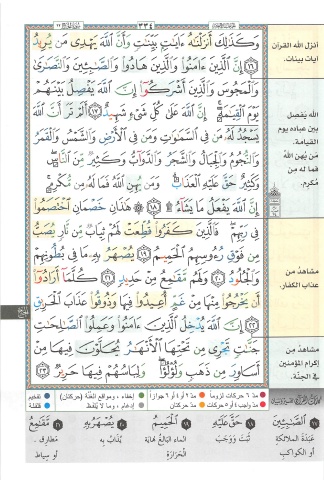 ٣٣٤
وَكَذَٰلِكَ أَنزَلْنَٰهُ ءَايَٰتٍۭ بَيِّنَٰتٍ وَأَنَّ ٱللَّهَ يَهْدِى مَن يُرِيدُ
١٦ إِنَّ ٱلَّذِينَ ءَامَنُوا۟ وَٱلَّذِينَ هَادُوا۟ وَٱلصَّٰبِـِٔينَ وَٱلنَّصَٰرَىٰ
وَٱلْمَجُوسَ وَٱلَّذِينَ أَشْرَكُوٓا۟ إِنَّ ٱللَّهَ يَفْصِلُ بَيْنَهُمْ
يَوْمَ ٱلْقِيَٰمَةِ إِنَّ ٱللَّهَ عَلَىٰ كُلِّ شَىْءٍ شَهِيدٌ ١٧ أَلَمْ تَرَ أَنَّ ٱللَّهَ
يَسْجُدُ لَهُۥ مَن فِى ٱلسَّمَٰوَٰتِ وَمَن فِى ٱلْأَرْضِ وَٱلشَّمْسُ وَٱلْقَمَرُ
وَٱلنُّجُومُ وَٱلْجِبَالُ وَٱلشَّجَرُ وَٱلدَّوَآبُّ وَكَثِيرٌ مِّنَ ٱلنَّاسِ
وَكَثِيرٌ حَقَّ عَلَيْهِ ٱلْعَذَابُ وَمَن يُهِنِ ٱللَّهُ فَمَا لَهُۥ مِن مُّكْرِمٍ
إِنَّ ٱللَّهَ يَفْعَلُ مَا يَشَآءُ ۩ ١٨ هَٰذَانِ خَصْمَانِ ٱخْتَصَمُوا۟
فِى رَبِّهِمْ فَٱلَّذِينَ كَفَرُوا۟ قُطِّعَتْ لَهُمْ ثِيَابٌ مِّن نَّارٍ يُصَبُّ
مِن فَوْقِ رُءُوسِهِمُ ٱلْحَمِيمُ ١٩ يُصْهَرُ بِهِۦ مَا فِى بُطُونِهِمْ
وَٱلْجُلُودُ ٢٠ وَلَهُم مَّقَٰمِعُ مِنْ حَدِيدٍ ٢١ كُلَّمَآ أَرَادُوٓا۟
أَن يَخْرُجُوا۟ مِنْهَا مِنْ غَمٍّ أُعِيدُوا۟ فِيهَا وَذُوقُوا۟ عَذَابَ ٱلْحَرِيقِ
٢٢ إِنَّ ٱللَّهَ يُدْخِلُ ٱلَّذِينَ ءَامَنُوا۟ وَعَمِلُوا۟ ٱلصَّٰلِحَٰتِ
جَنَّٰتٍ تَجْرِى مِن تَحْتِهَا ٱلْأَنْهَٰرُ يُحَلَّوْنَ فِيهَا مِنْ
أَسَاوِرَ مِن ذَهَبٍ وَلُؤْلُؤًا وَلِبَاسُهُمْ فِيهَا حَرِيرٌ ٢٣
أنزل الله القرآن
آيات بينات.
الله يفصل
بين عباده يوم
القيامة،
من يُهن الله
فما له من
مُكرم.
مشاهد من
عذاب الكفار.
مشاهد من
إكرام المؤمنين
في الجنّة.
مدّ ٦ حركات لزوماً مدّ ٢ أو ٤ أو ٦ جوازاً إخفاء، ومواقع الغنّة (حركتان) تفخيم
مدّ واجب ٤ أو ٥ حركات مدّ حركتان إدغام، وما لا يُلفظ قلقلة
١٧ الصَّابِئِينَ
عَبَدَةَ الملائكةِ
أو الكواكبِ
١٨ حَقَّ عَلَيْهِ
ثَبَتَ وَوَجَبَ
١٩ الْحَمِيمُ
الماء البالغُ نهايةَ
الحرارةِ
٢٠ يُصْهَرُ بِهِ
يُذابُ به
٢١ مَقَامِعُ
مطارقُ
أو سياط